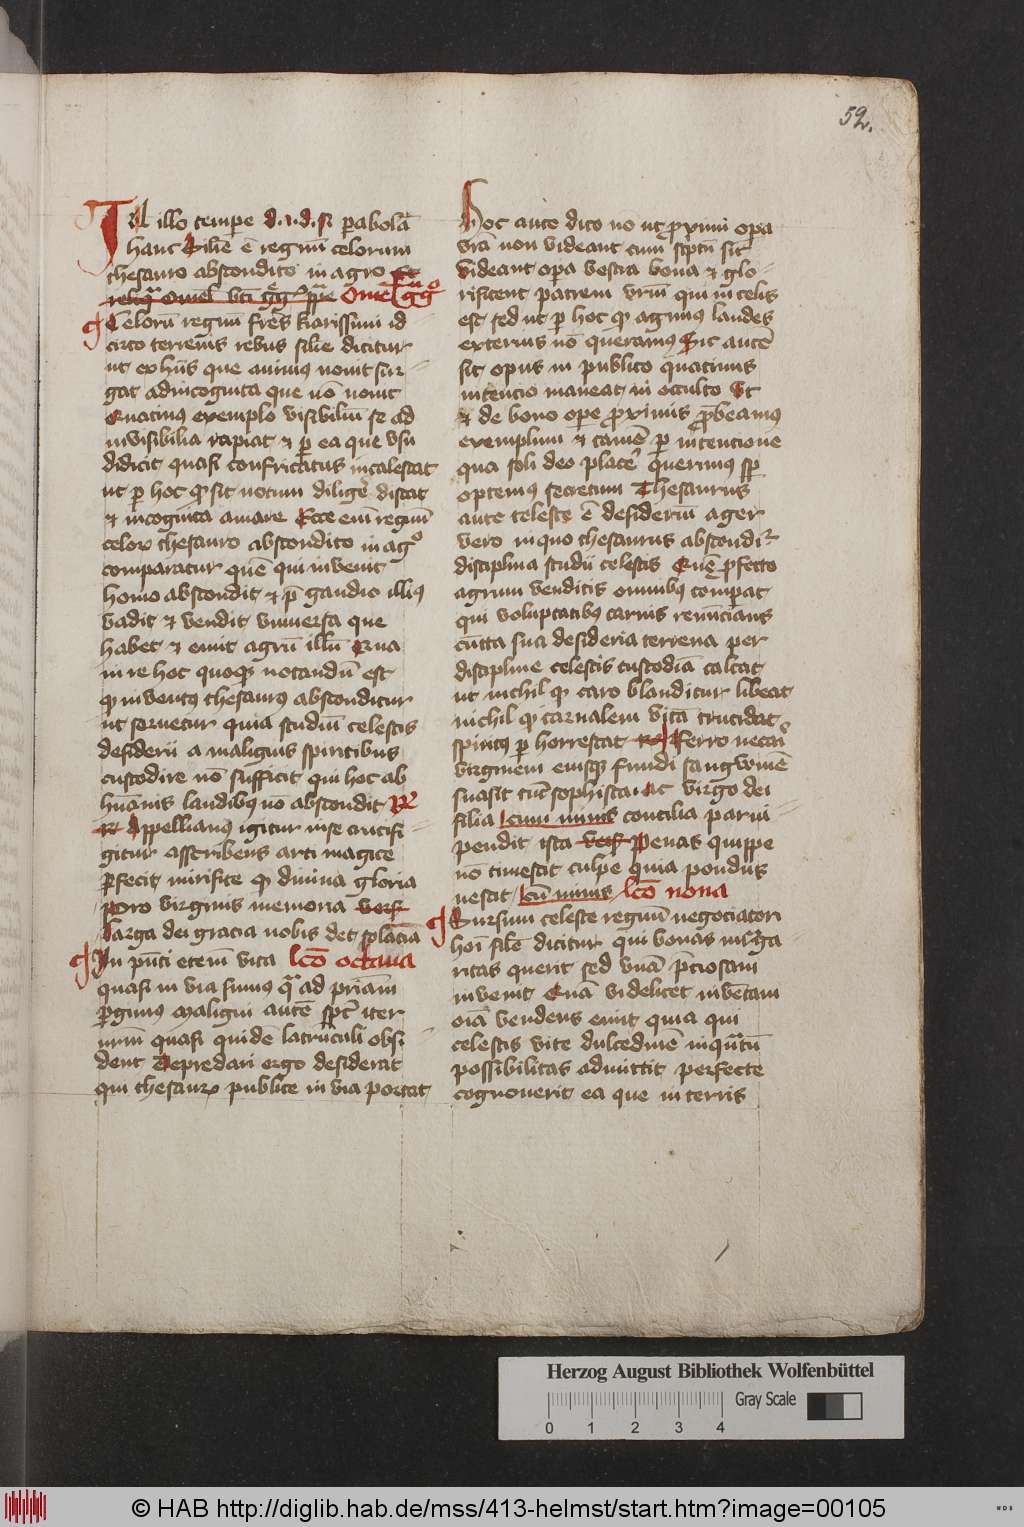 52.
In illo tempe d.i.d.s. pabolā
hanc Silīe ē regnū celorum
thesauro abscondito in agro Et
reliqa Omel bti gg pape Omel gg
Celorū regnū frēs karissimi id
circo terrenis rebus silīe dicitur
ut ex hiis que animus novit sur
gat ad incognita que nō novit
Quatinus exemplo visibiliū se ad
invisibilia rapiat et p ea que usu
didicit quasi confricatus incalescat
ut p hoc qd sit notum diligē discat
et incognita amare Ecce enī regnū
celorum thesauro abscondito in ago
comparatur quē qui invenit
homo abscondit et p gaudio illius
vadit et vendit universa que
habet et emit agrū illū Qua
in re hoc quoque notandū est
qd inventus thesaurus absconditur
ut servetur quia studiū celestis
desiderii a malignis spiritibus
custodire nō sufficit qui hoc ab
humānis laudibus nō abscondit R
R Appellianus igitur in se crucifi
gitur asscribens arti magice
perfecit mirifice qd divina gloria
Pro virginis memoria vers
Larga dei gracia nobis det solacia
In pnti etenī vita lcō octava
quasi in via sumus qua ad patriam
pergimus Maligni autē spc iter
nrm quasi quidē latrūculi obsi
dent Depredari ergo desiderat
qui thesaurum publice in via portat
Hoc aute dico no ut proximi opa
nrā non videant cum scptū sit
videant opera vestra bona et glo
rificent patrem vrm qui in celis
est sed ut p hoc qd agimus laudes
exterius nō queramus Sic autē
sit opus in publico quatinus
intencio maneat in occulto Et
et de bono ope proximis prebeamus
exemplum et tamē p intencione
qua soli deo placē querimus sp
optemus secretum Thesaurus
aute celeste ē desideriū ager
vero in quo thesaurus abscondir
disciplina studii celestis Quē profecto
agrum venditis omnibus compat
qui voluptatibus carnis renūcians
cūcta sua desideria terrena per
discipline celestis custodiā calcat
ut nichil qd caro blanditur libeat
nichil qd carnalem vitā trucidat
spiritus p horrescat Ferro necari
virginem eiusque fundi sangwinē
suasit tūc sophista Ac virgo dei
filia cum nimis concilia parvi
pendit ista vers Penas quippe
nō timescit culpe quia pondus
nescit cū nimis lcō nona
Rursum celeste regnū negociatori
hoī silē dicitur qui bonas marga
ritas querit sed unā preciosam
invenit Quā videlicet inventam
oīa vendens emit quia qui
celestis vite dulcedinē inquatū
possibilitas admittit perfecte
cognoverit ea que in terris
Herzog August Bibliothek Wolfenbüttel
Gray Scale
0 1 2 3 4
© HAB http://diglib.hab.de/mss/413-helmst/start.htm?image=00105